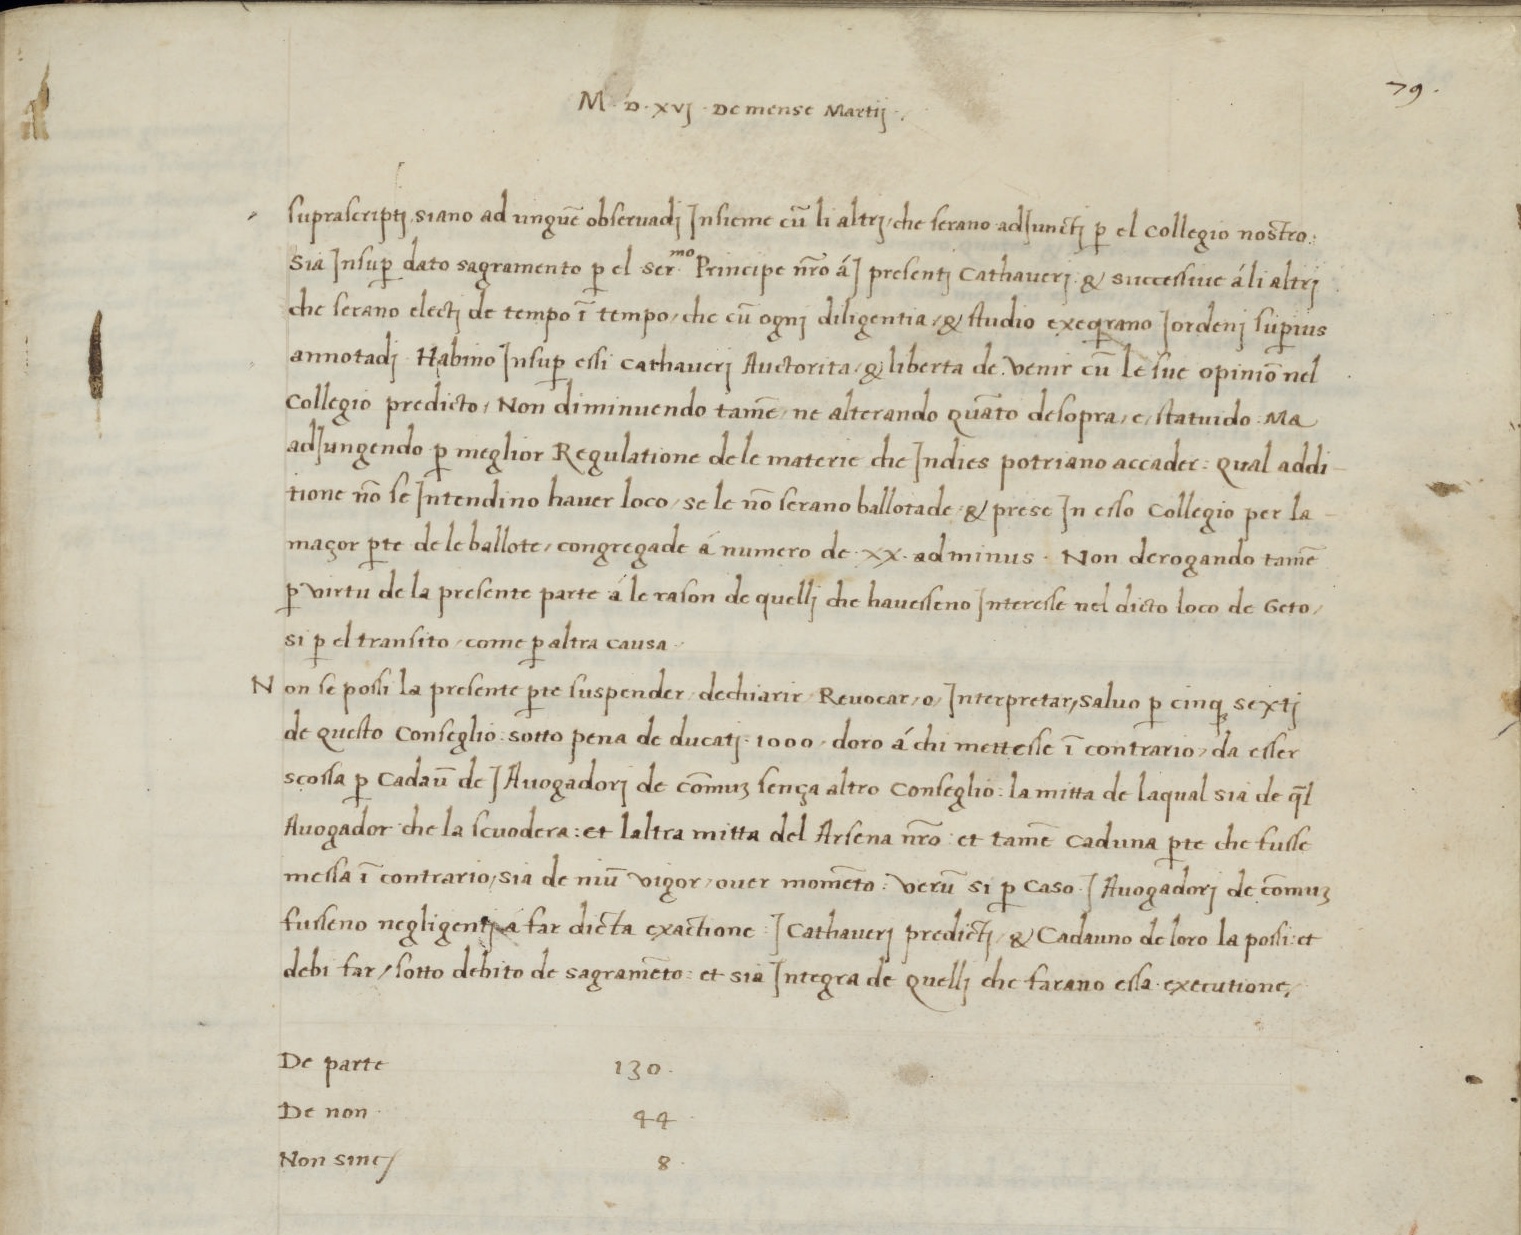 M · D · XVJ · De mense Martij ·
79 ·
suprascriptj siano ad unguē observadj Jnsieme cū li altrj, che serano adJunctj p̱ el Collegio nostro:
Sia Jnsup̱ dato sagramento p̱ el Ser.mo Principe nr̄o á J presentj Cathaverj & successive á li altrj
che serano electj de tempo ī tempo, che cū ognj diligentia, & studio exeq̱rano J ordenj sup̱ius
annotadj · Habino Jnsup̱ essi Cathaverj Auctorita, & liberta de venir cū le sue opiniō nel
Collegio predicto, Non diminuendo tamē, ne alterando quāto desopra, e, statuido · Ma
adJungendo p̱ meglior Regulatione de le materie che Jndies potriano accader: qual addi-
tione nō se Jntendino haver loco, se le nō serano ballotade & prese Jn esso Collegio per la
maçor p̱te de le ballote, congregade á numero de · XX · ad minus · Non derogando tamē
p̱ virtu de la presente parte á le rason de quellj che havesseno Jnteresse nel dicto loco de Geto,
si p̱ el transito, come p̱ altra causa ·
Non se possi la presente p̱te suspender, dechiarir, Revocar, o, Jnterpretar, salvo p̱ cinq̱ sextj
de questo Conseglio: sotto pena de ducatj · 1000 · doro á chi mettesse ī contrario, da esser
scossa p̱ Cadaū de J Avogadorj de cōmuꝫ sença altro Conseglio: la mitta de laqual sia de q̄l
Avogador che la scuodera: et laltra mitta del Arsena nr̄o: et tamē caduna p̱te che fusse
messa ī contrario, sia de niū vigor, over momēto: verū si p̱ caso J Avogadorj de cōmuꝫ
fusseno negligentj á far dicta exactione: J Cathaverj predictj, & Cadauno de loro la possi: et
debi far, sotto debito de sagramēto: et sia Jntegra de quellj che farano essa executione,
De parte 130 ·
De non · 44
Non sinc 8 ·